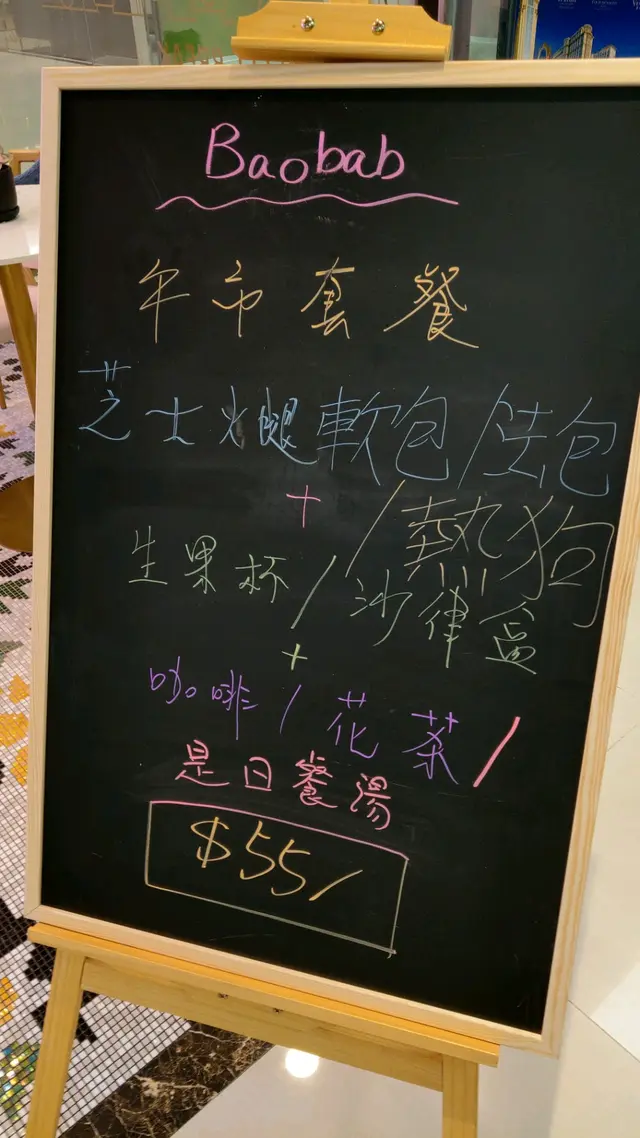 Baobab
午市套餐
芝士火腿軟包/法包
+
/熱狗
生果杯/沙律盒
+
咖啡/花茶/
是日餐湯
$55/